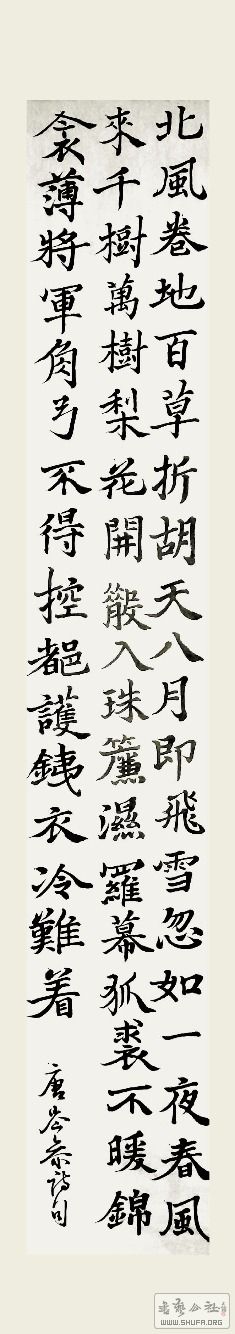 北風卷地百草折胡天八月即飛雪忽如一夜春風
來千樹萬樹梨花開散入珠簾濕羅幕狐裘不暖錦
衾薄將軍角弓不得控都護銕衣冷難着
唐岑參詩句
书艺公社
WWW.SHUFA.ORG